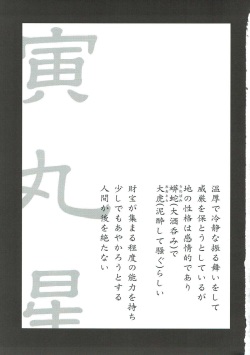 寅丸星
温厚で冷静な振る舞いをして
威厳を保とうとしているが
地の性格は感情的であり
蟒蛇(大酒呑み)で
大虎(泥酔して騒ぐ)らしい
財宝が集まる程度の能力を持ち
少しでもあやかろうとする
人間が後を絶たない